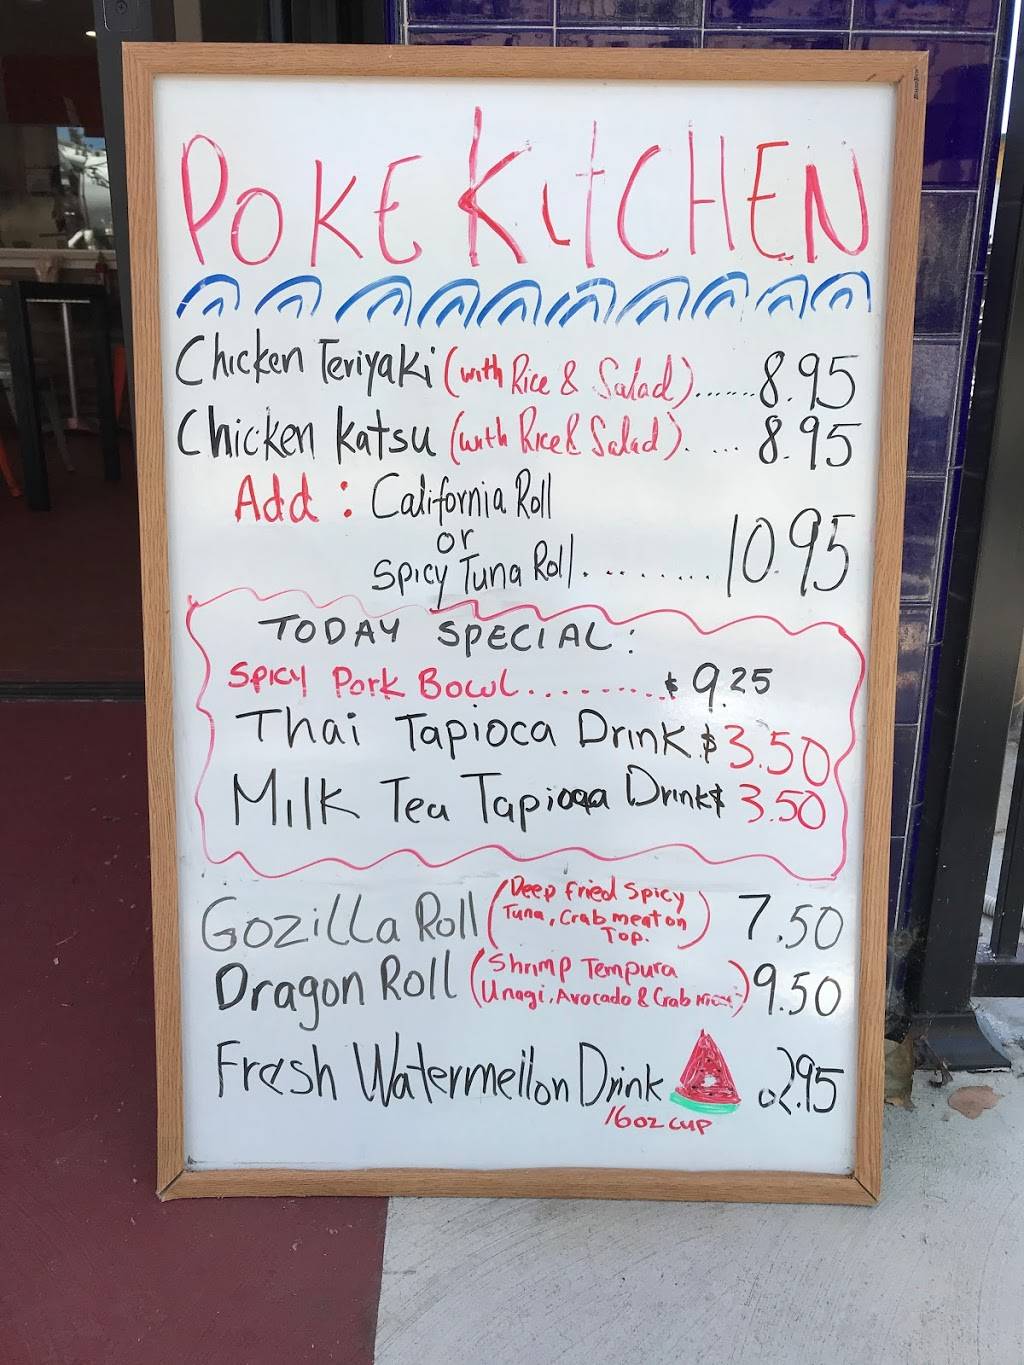 POKE KITCHEN
Chicken Teriyaki (with Rice & Salad)......8.95
Chicken Katsu (with Rice & Salad). ... 8.95
Add : California Roll
or
Spicy Tuna Roll.........10.95
TODAY SPECIAL:
SPICY Pork Bowl..........$ 9.25
Thai Tapioca Drink $3.50
Milk Tea Tapioca Drink $3.50
Gozilla Roll (Deep fried Spicy 7.50
Tuna, Crab meat on
Top.)
Dragon Roll (Shrimp Tempura 9.50
Unagi, Avocado & Crab
Fresh Watermellon Drink 2.95
16oz cup